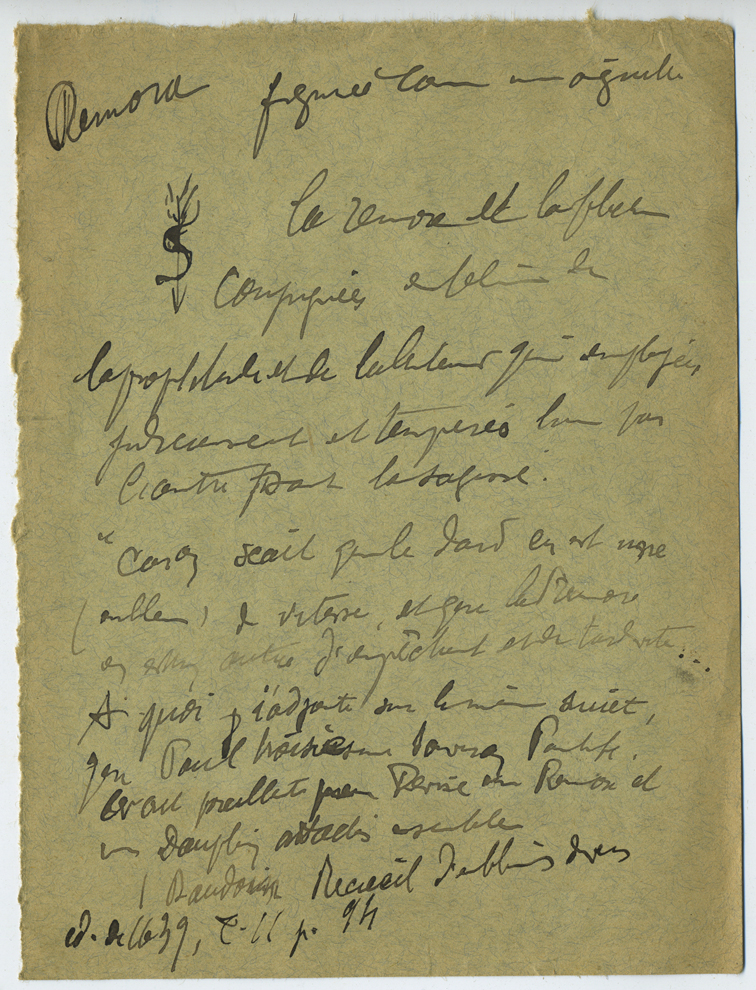 Remora figurée comme une anguille
la remore et la flèche
Conjuguées emblème de
la promptitude et de la lenteur qui employées
et tempérés l'un par
l'autre font la sagesse.
"Car on scait que le dard en est une
( ) de vitesse, et que la Remore
en est un autre d'empêchement et de tardiveté...
A quoi j'adjoute sur le mesme suiet,
que Paul troisiesme souverain Pontife.
avait pour Devise une Remore et
un Dauphin attachés ensemble
( Baudoin Recueil d'emblèmes divers
ed. de 1639, t. II p. 94